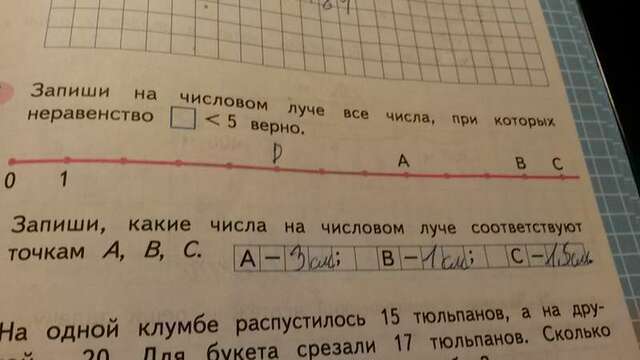 Запиши на числовом луче все числа, при которых
неравенство □ < 5 верно.
D A B C
0 1
Запиши, какие числа на числовом луче соответствуют
точкам A, B, C. A – 3 см; B – 1 см; C – 1,5 см.
На одной клумбе распустилось 15 тюльпанов, а на дру-
20. Для букета срезали 17 тюльпанов. Сколько